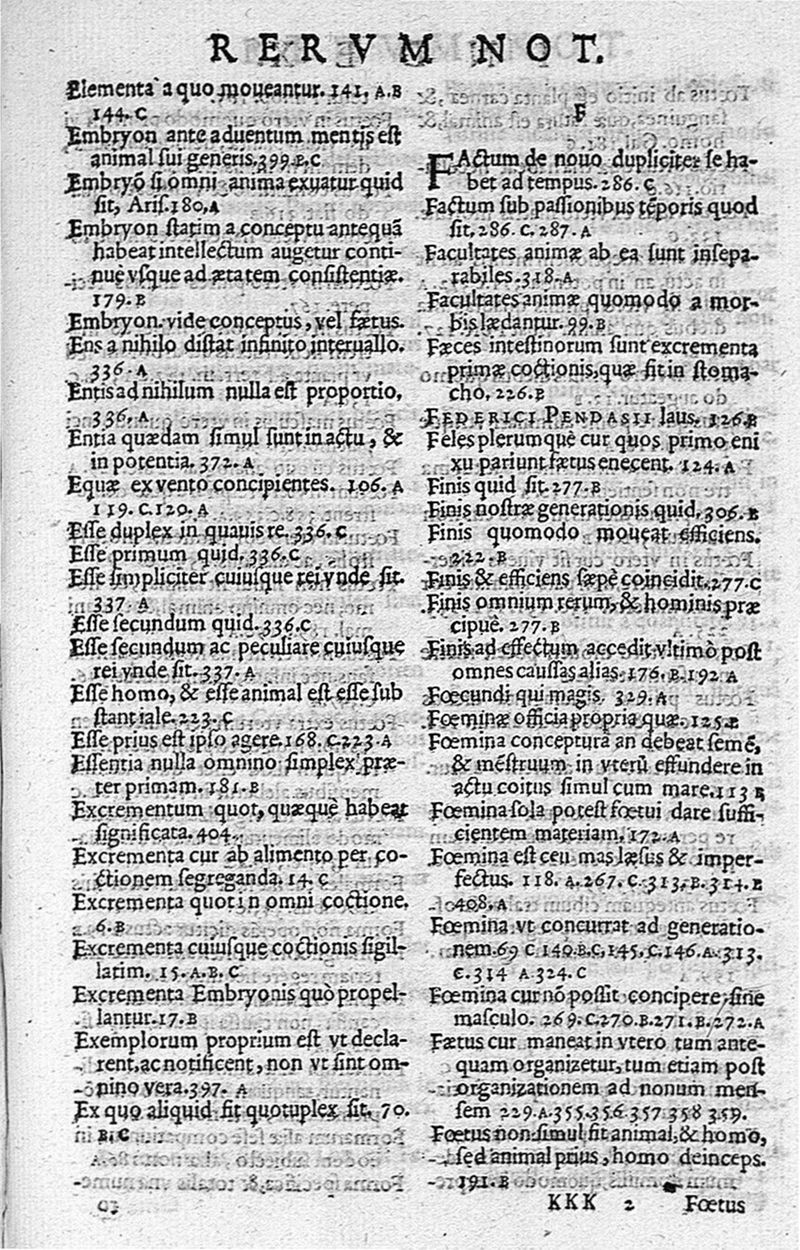 RERVM NOT.
Elementa a quo moueantur. 141. A.B
144. C
Embryon ante aduentum mentis est
animal sui generis. 399. B. C
Embryõ si omni anima exuatur quid
sit, Aris. 180. A
Embryon statim a conceptu antequã
habeat intellectum augetur conti-
nuè vsque ad ætatem consistentiæ.
179. B
Embryon. vide conceptus, vel fætus.
Ens a nihilo distat infinito interuallo.
336. A
Entis ad nihilum nulla est proportio,
336. A
Entia quædam simul sunt in actu, &
in potentia. 372. A
Equæ ex vento concipientes. 106. A
119. C. 120. A
Esse duplex in quauis re. 336. C
Esse primum quid. 336. C
Esse simpliciter cuiusque rei vnde sit.
337. A
Esse secundum quid. 336. C
Esse secundum ac peculiare cuiusque
rei vnde sit. 337. A
Esse homo, & esse animal est esse sub
stantiale. 223. C
Esse prius est ipso agere. 168. C. 223. A
Essentia nulla omnino simplex præ-
ter primam. 181. B
Excrementum quot, quæquè habeat
significata. 404.
Excrementa cur ab alimento per co-
ctionem segreganda. 14. C
Excrementa quot in omni coctione.
6. B
Excrementa cuiusque coctionis sigil-
latim. 15. A. B. C
Excrementa Embryonis quò propel-
lantur. 17. B
Exemplorum proprium est vt decla-
rent, ac notificent, non vt sint om-
nino vera. 397. A
Ex quo aliquid fit quotuplex sit. 70.
B. C
F
FActum de nouo dupliciter se ha-
bet ad tempus. 286. C
Factum sub passionibus tẽporis quod
sit. 286. C. 287. A
Facultates animæ ab ea sunt insepa-
rabiles. 318. A
Facultates animæ quomodo a mor-
bis lædantur. 99. B
Fæces intestinorum sunt excrementa
primæ coctionis, quæ fit in stoma-
cho. 226. B
FEDERICI PENDASII laus. 126. B
Feles plerumquè cur quos primo eni
xu pariunt fætus enecent. 124. A
Finis quid sit. 277. B
Finis nostræ generationis quid. 306. B
Finis quomodo moueat efficiens.
222. B
Finis & efficiens sæpè coincidit. 277. C
Finis omnium rerum, & hominis præ
cipuè. 277. B
Finis ad effectum accedit vltimò post
omnes caussas alias. 176. B. 192 A
Fœcundi qui magis. 329. A
Fœminæ officia propria quæ. 125. B
Fœmina conceptura an debeat semẽ,
& mẽstruum in vterũ effundere in
actu coitus simul cum mare. 113 B
Fœmina sola potest fœtui dare suffi-
cientem materiam. 172. A
Fœmina est ceu mas læsus & imper-
fectus. 118. A. 267. C. 313. B. 314. B
408. A
Fœmina vt concurrat ad generatio-
nem. 69 C 140. B. C. 145. C. 146. A. 313.
C. 314 A. 324. C
Fœmina cur nõ possit concipere sine
masculo. 269. C. 270. B. 271. B. 272. A
Fætus cur maneat in vtero tum ante-
quam organizetur, tum etiam post
organizationem ad nonum men-
sem 229. A. 355. 356. 357 358 359.
Fœtus non simul fit animal, & homo,
sed animal prius, homo deinceps.
191. B
KKK 2 Fœtus